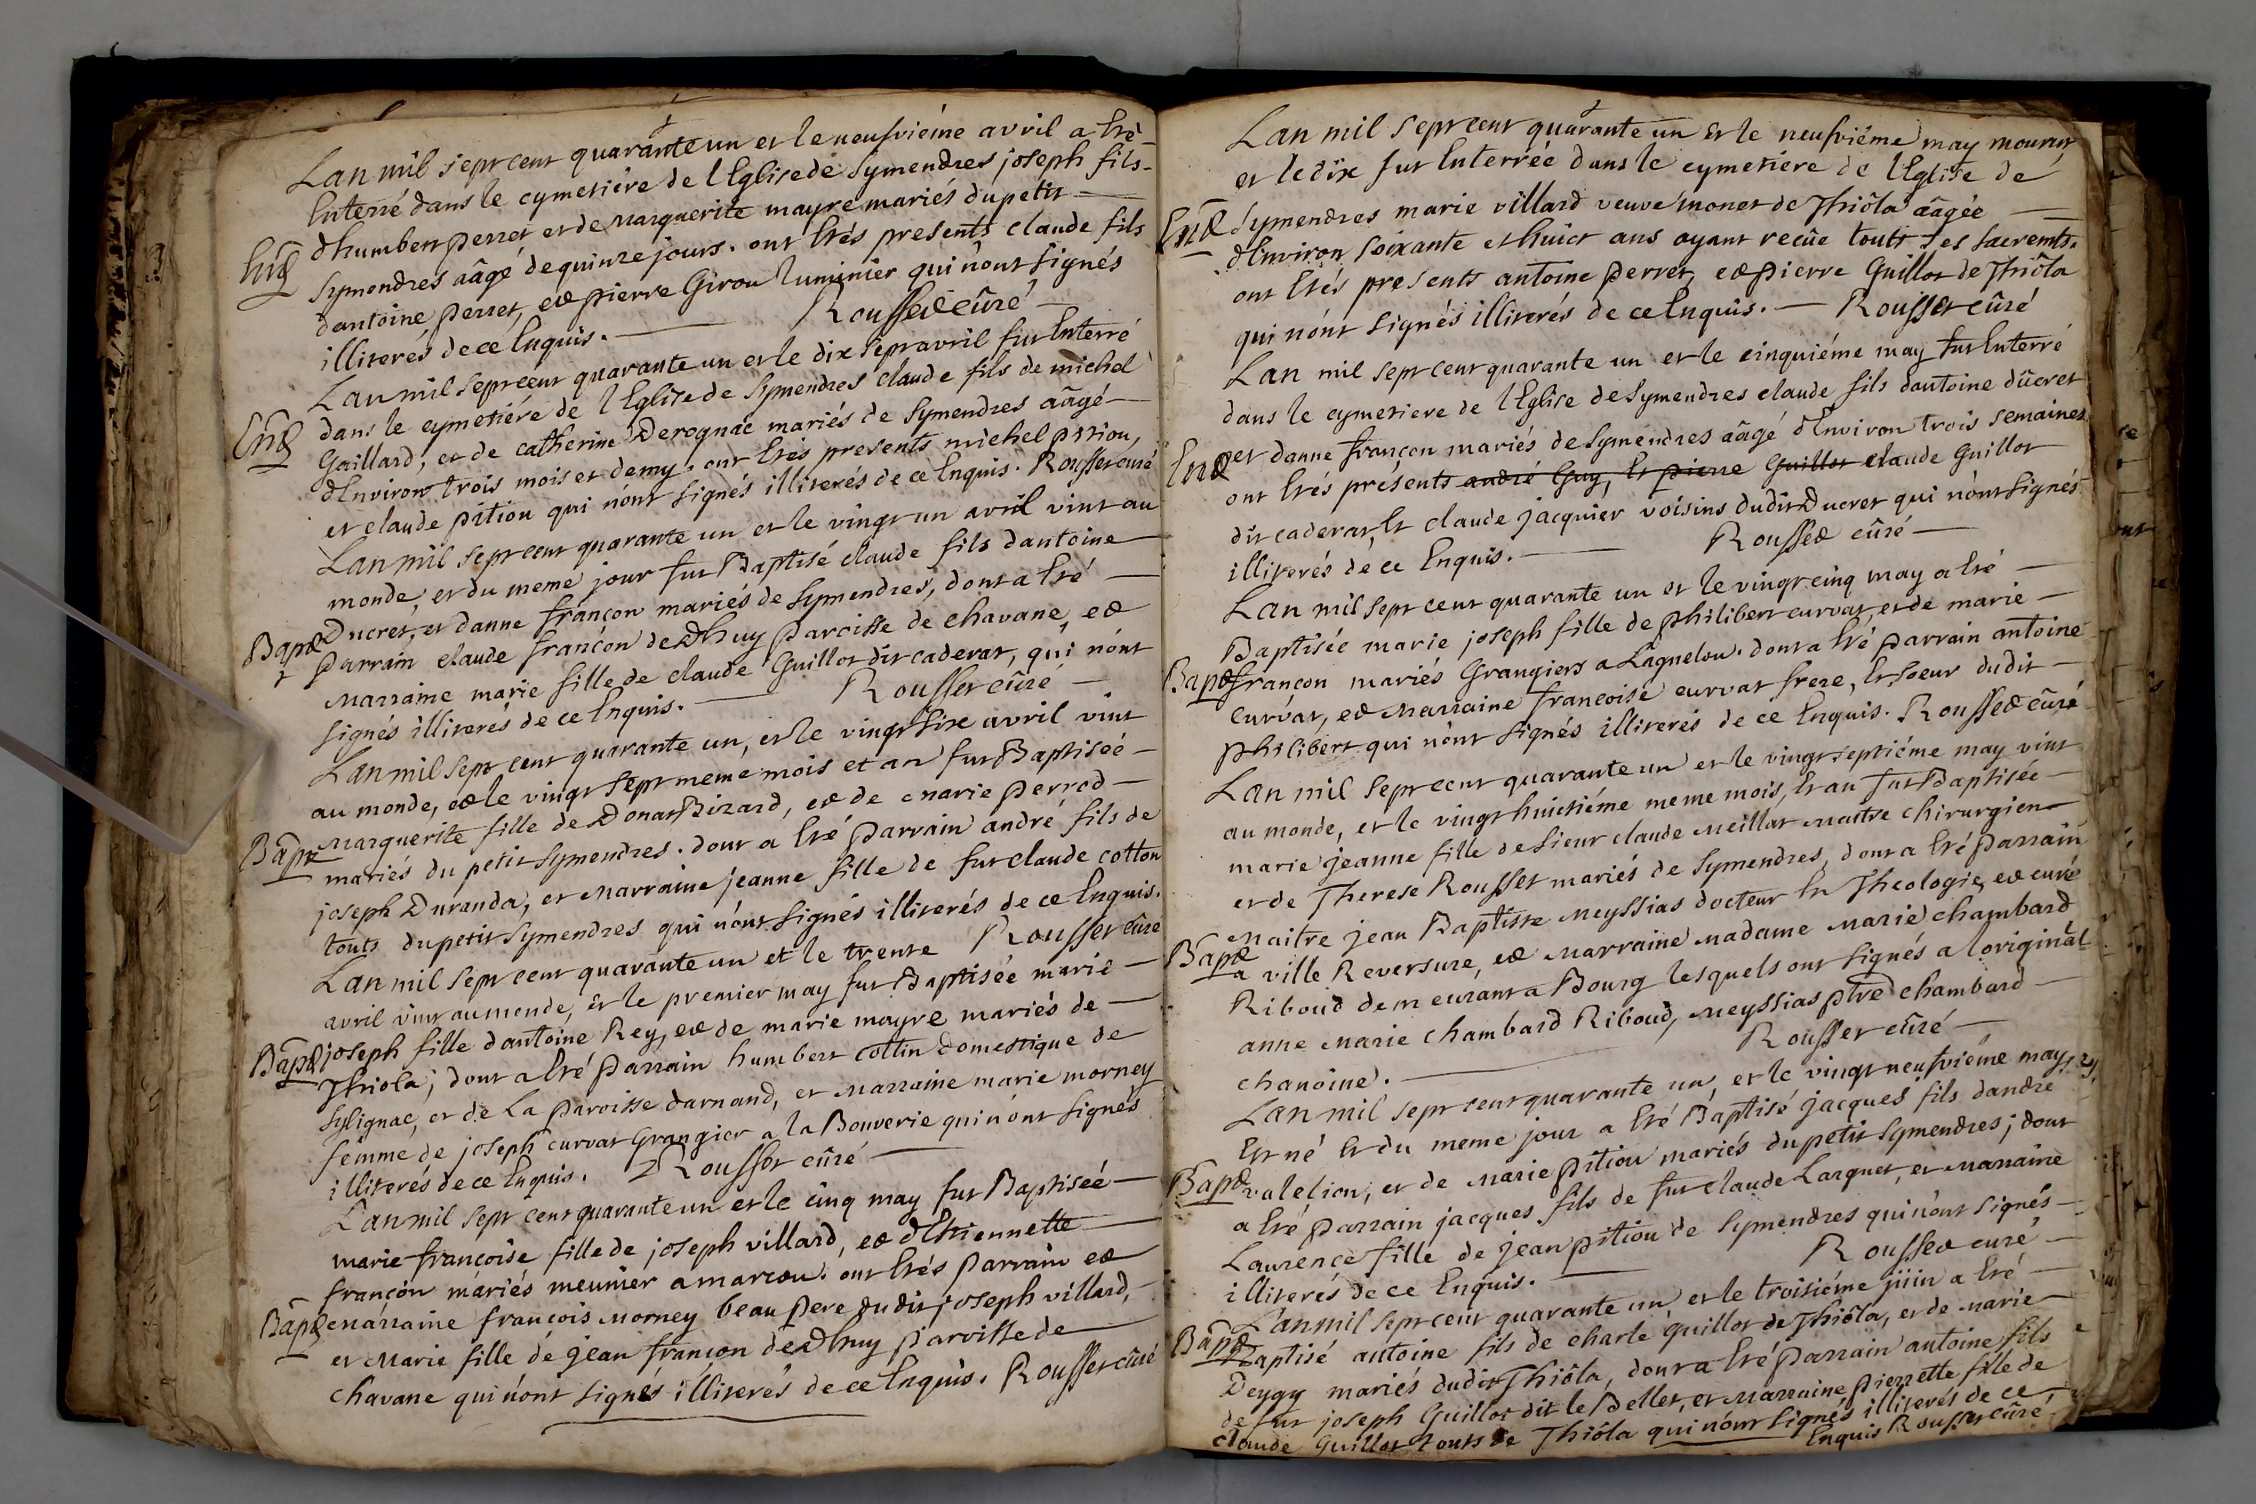 Lan mil sept cent quarante un et le neufviéme avril a Eté
Enterré dans le cymetiére de l'Eglise de Symendres joseph fils
Ent
dhumbert perret et de marguerite mayre mariés du petit
Symendres aâgé de quinze jours. ont Etés presents claude fils
dantoine perret, et pierre Girou luminier qui nónt signés
illiterés de ce Enquis. Rousset cûré
Lan mil sept cent quarante un et le dix sept avril fut Enterré
dans le cymetiére de l'Eglise de Symendres claude fils de michel
Ent
Gaillard, et de catherine Derognac mariés de Symendres aâgé
dEnviron trois mois et demy. ont Etés presents michel pitiou,
et claude pitiou qui nónt signés illiterés de ce Enquis. Rousset curé
Lan mil sept cent quarante un et le vingt un avril vint au
monde, et du meme jour fut Baptisé claude fils dantoine
Ducret, et danne françon mariés de Symendres, dont a Eté
Bapt
parrain claude françon de Dhuy paroisse de chavane, et
marraine marie fille de claude Guillot dit caderat, qui nónt
signés illiterés de ce Enquis. Rousset cûré
Lan mil sept cent quarante un, et le vingt six avril vint
au monde, et le vingt sept meme mois et an fut Baptiseé
Bapt
Marguerite fille de Donat Bizard, et de marie perrod
mariés du petit Symendres. dont a Eté parrain andré fils de
joseph Duranda, et marraine jeanne fille de fut claude cotton
touts du petit Symendres qui nónt signés illiterés de ce Enquis.
Lan mil sept cent quarante un et le trente Rousset cûré
avril vint au monde, et le premier may fut Baptisée marie
Bapt
joseph fille dantoine Rey, et de marie mayre mariés de
Thiola; dont a Eté parrain humbert cottin domestique de
Sylignac, et de la paroisse darnand, et marraine marie morney
femme de joseph curvat Grangier a la Bouverie qui nónt signés
illiterés de ce Enquis. Rousset cûré
Lan mil sept cent quarante un et le cinq may fut Baptiseé
marie françoise fille de joseph villard, et dEtiennette
françon mariés meunier a marcou. ont Etés parrain et
Bapt
marraine françois morney beau pere dudit joseph villard,
et Marie fille de jean françon de Dhuy parroisse de
chavane qui nónt signés illiterés de ce Enquis. Rousset cûré
Lan mil sept cent quarante un et le neufviéme may mourut
et le dix fut Enterrée dans le cymetiere de l'Eglise de
Ent
Symendres marie villard veuve monet de Thiôla aâgée
dEnviron soixante et huict ans ayant recûe touts ses sacremts.
ont Etés presents antoine perret, et pierre Guillot de Thiôla
qui nónt signés illiterés de ce Enquis. Rousset cûré
Lan mil sept cent quarante un et le cinquiéme may fut Enterré
dans le cymetiere de l'Eglise de Symendres claude fils dantoine dûcret
Ent
et danne françon mariés de Symendres aâgé dEnviron trois semaines
ont Etés présents andré Guy, Et pierre Guillot claude Guillot
dit caderat, Et claude jacquier voisins dudit Ducret qui nónt signés
illiterés de ce Enquis. Rousset cûré
Lan mil sept cent quarante un et le vingt cinq may a Eté
Baptisée marie joseph fille de philibert curvat, et de marie
Bapt
françon mariés Grangiers a Lagnelou. dont a Eté parrain antoine
Curvat, et Marraine francoise curvat frere, Et soeur dudit
philibert qui nónt signés illiterés de ce Enquis. Rousset cûré
Lan mil sept cent quarante un et le vingt septiéme may vint
au monde, et le vingt huictiéme meme mois, Et an fut Baptisée
marie jeanne fille de Sieur claude Meillat Maitre chirurgien
et de Therese Rousset mariés de Symendres, dont a Eté parrain
Maitre jean Baptiste Meyssias docteur En Theologie, et curé
Bapt
a ville Reversure, et marraine Madame Marie chambard
Riboud demeurant a Bourg lesquels ont signés a loriginal
anne Marie chambard Riboud, Meyssias ptre chambard
chanoine. Rousset cûré
Lan mil sept cent quarante un, et le vingt neufviéme may
Est né Et du meme jour a Eté Baptisé jacques fils dandré
Bapt
valetion, et de Marie pitiou mariés du petit Symendres; dont
a Eté parrain jacques fils de fut claude Larguet, et Marraine
Laurence fille de jean pitiou de Symendres qui nónt signés
illiterés de ce Enquis. Rousset curé
Lan mil sept cent quarante un, et le troisiéme jüin a Eté
Bapt
Baptisé antoine fils de charle Guillot de Thiôla, et de Marie
Deygy mariés dudit Thiôla, dont a Eté parrain antoine fils
de fut joseph Guillot dit le Pellet, et Marraine pierrette fille de
claude Guillot touts de Thiôla qui nónt signés illiterés de ce
Enquis Rousset cûré